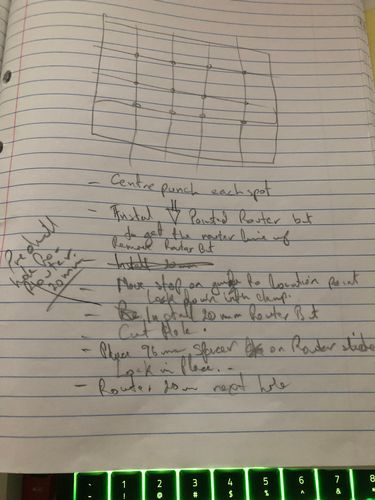 - Centre punch each spot
- Instal Pointed Router but
to get the router line up
Remove Router Bit
- Install 20mm
- Move stop on to Location point
Lock down with clamp.
- Re Instal 20mm Router Bit
- Cut Hole.
- Place 96mm Spacer on Router
Lock in Place. -
- Router 20mm next hole
Pre drill
hole
20mm
- 1 2 3 4 5 6 7 8
! @ # $ % ^ &